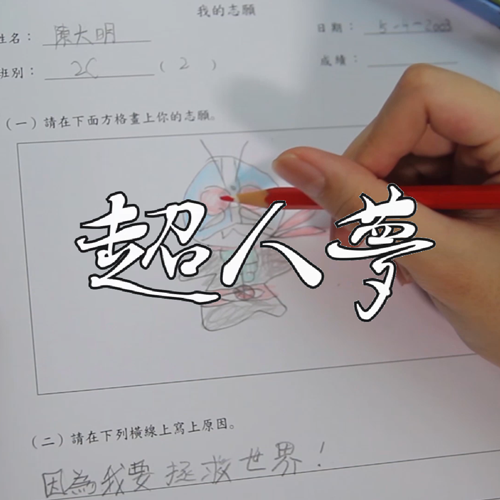 我的志願
姓名： 陳大明 日期： 5-4-2003
班別： 2C （ 2 ） 成績：
（一）請在下面方格畫上你的志願。
超人夢
（二）請在下列橫線上寫上原因。
因為我要拯救世界！